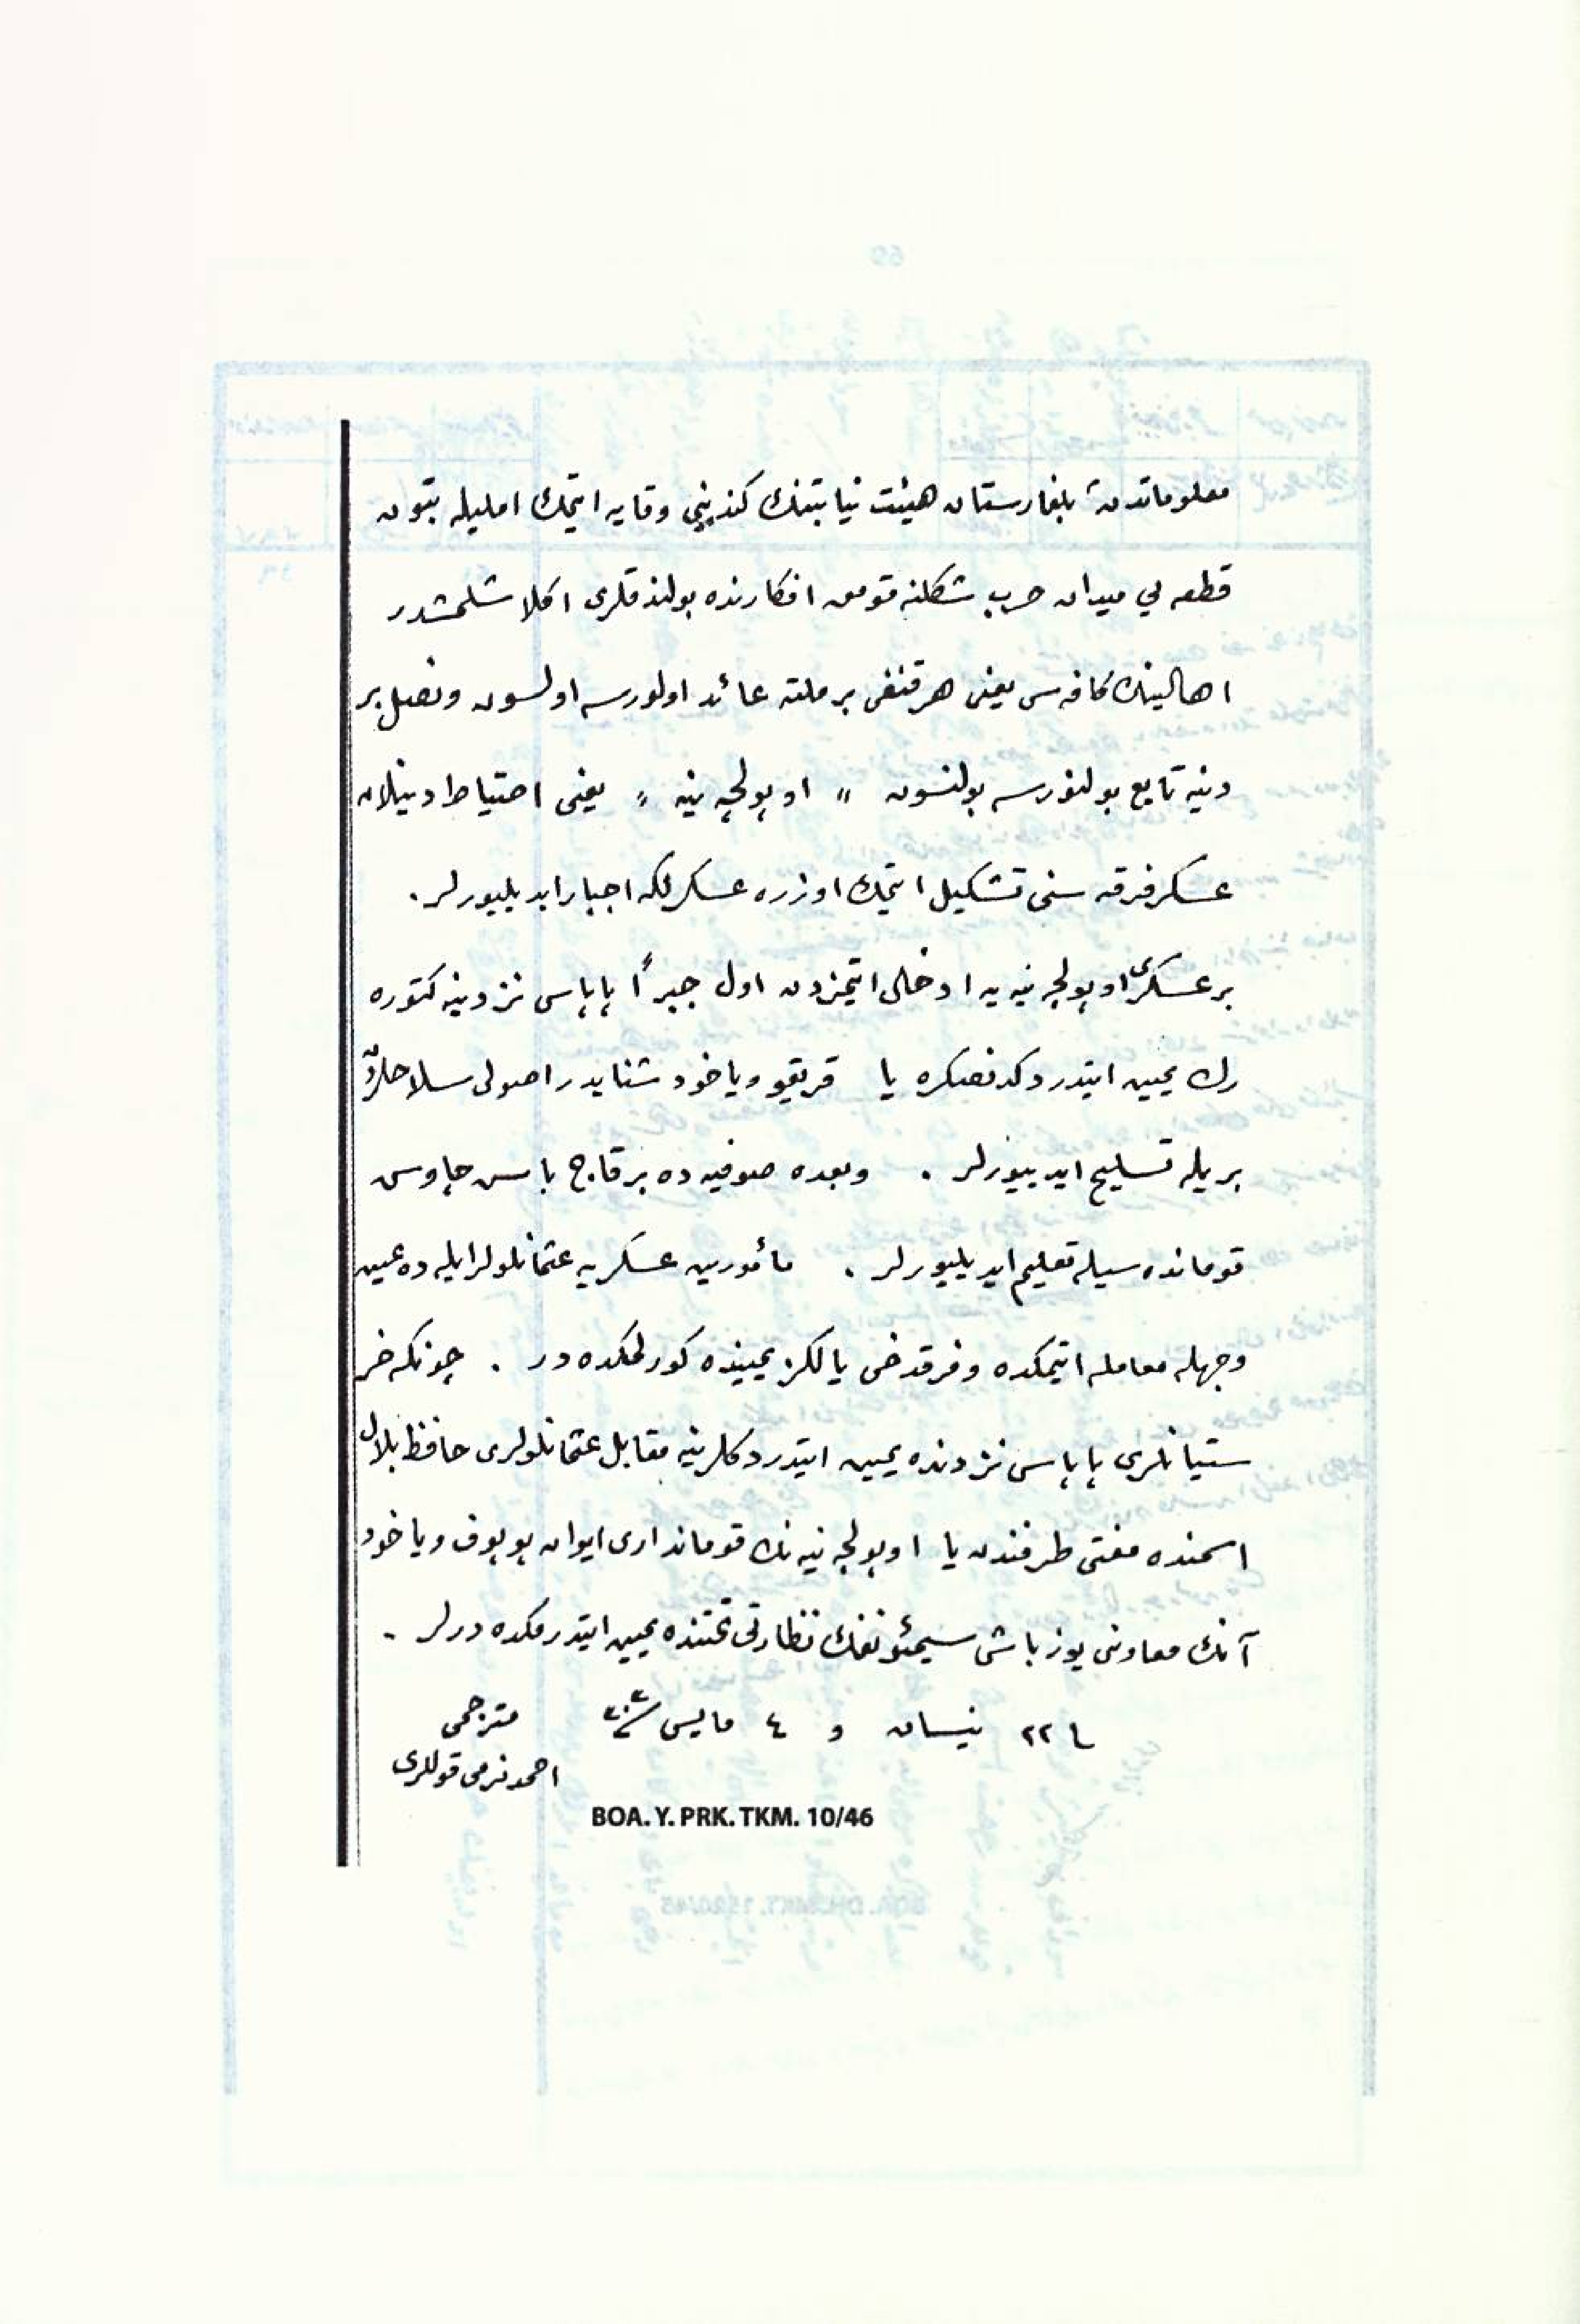 معلوماتدن بلغارستان هيئت نيابتنك كندينى وقايه ايتمك امليله بتون
قطعه يى ميدان حرب شكلنه قومق افكارنده بولندقلرى اكلاشلمشدر
اهالينك كافه سى يعنى هر قنغى بر ملته عائد اولورسه اولسون ونصل بر
دينه تابع بولنورسه بولنسون " اوپولچه نيه " يعنى احتياط دينلان
عسكر فرقه سنى تشكيل ايتمك اوزره عسكرلكه اجبار ايديليورلر .
بر عسكرى اوپولچه نيه يه ادخال ايتمزدن اول جبراً پاپاس نزدينه كتوره
رك يمين ايتدردكدنصكره يا قريقو وياخود شنايدر اصولى سلاحلردن
بريله تسليح ايدييورلر . وبعده صوفيه ده بر قاچ باس چاوس
قومانده سيله تعليم ايديليورلر . مأمورين عسكريه عثمانلولر ايله ده عين
وجهله معامله ايتمكده وفرقدخى يالكز يمينده كورلمكده در . چونكه خر
ستيانلرى پاپاس نزدنده يمين ايتدردكلرينه مقابل عثمانلولرى حافظ بلال
اسمنده مفتى طرفندن يا اوپولچه نيه نك قوماندارى ايوان پوپوف وياخود
آنك معاونى يوزباشى سيمئونفك نظارتى تحتنده يمين ايتدرمكده درلر .
٢٢ نيسان و ٤ مايس ٣٠٣
مترجمى
احمد نرمى قوللرى
BOA. Y. PRK. TKM. 10/46